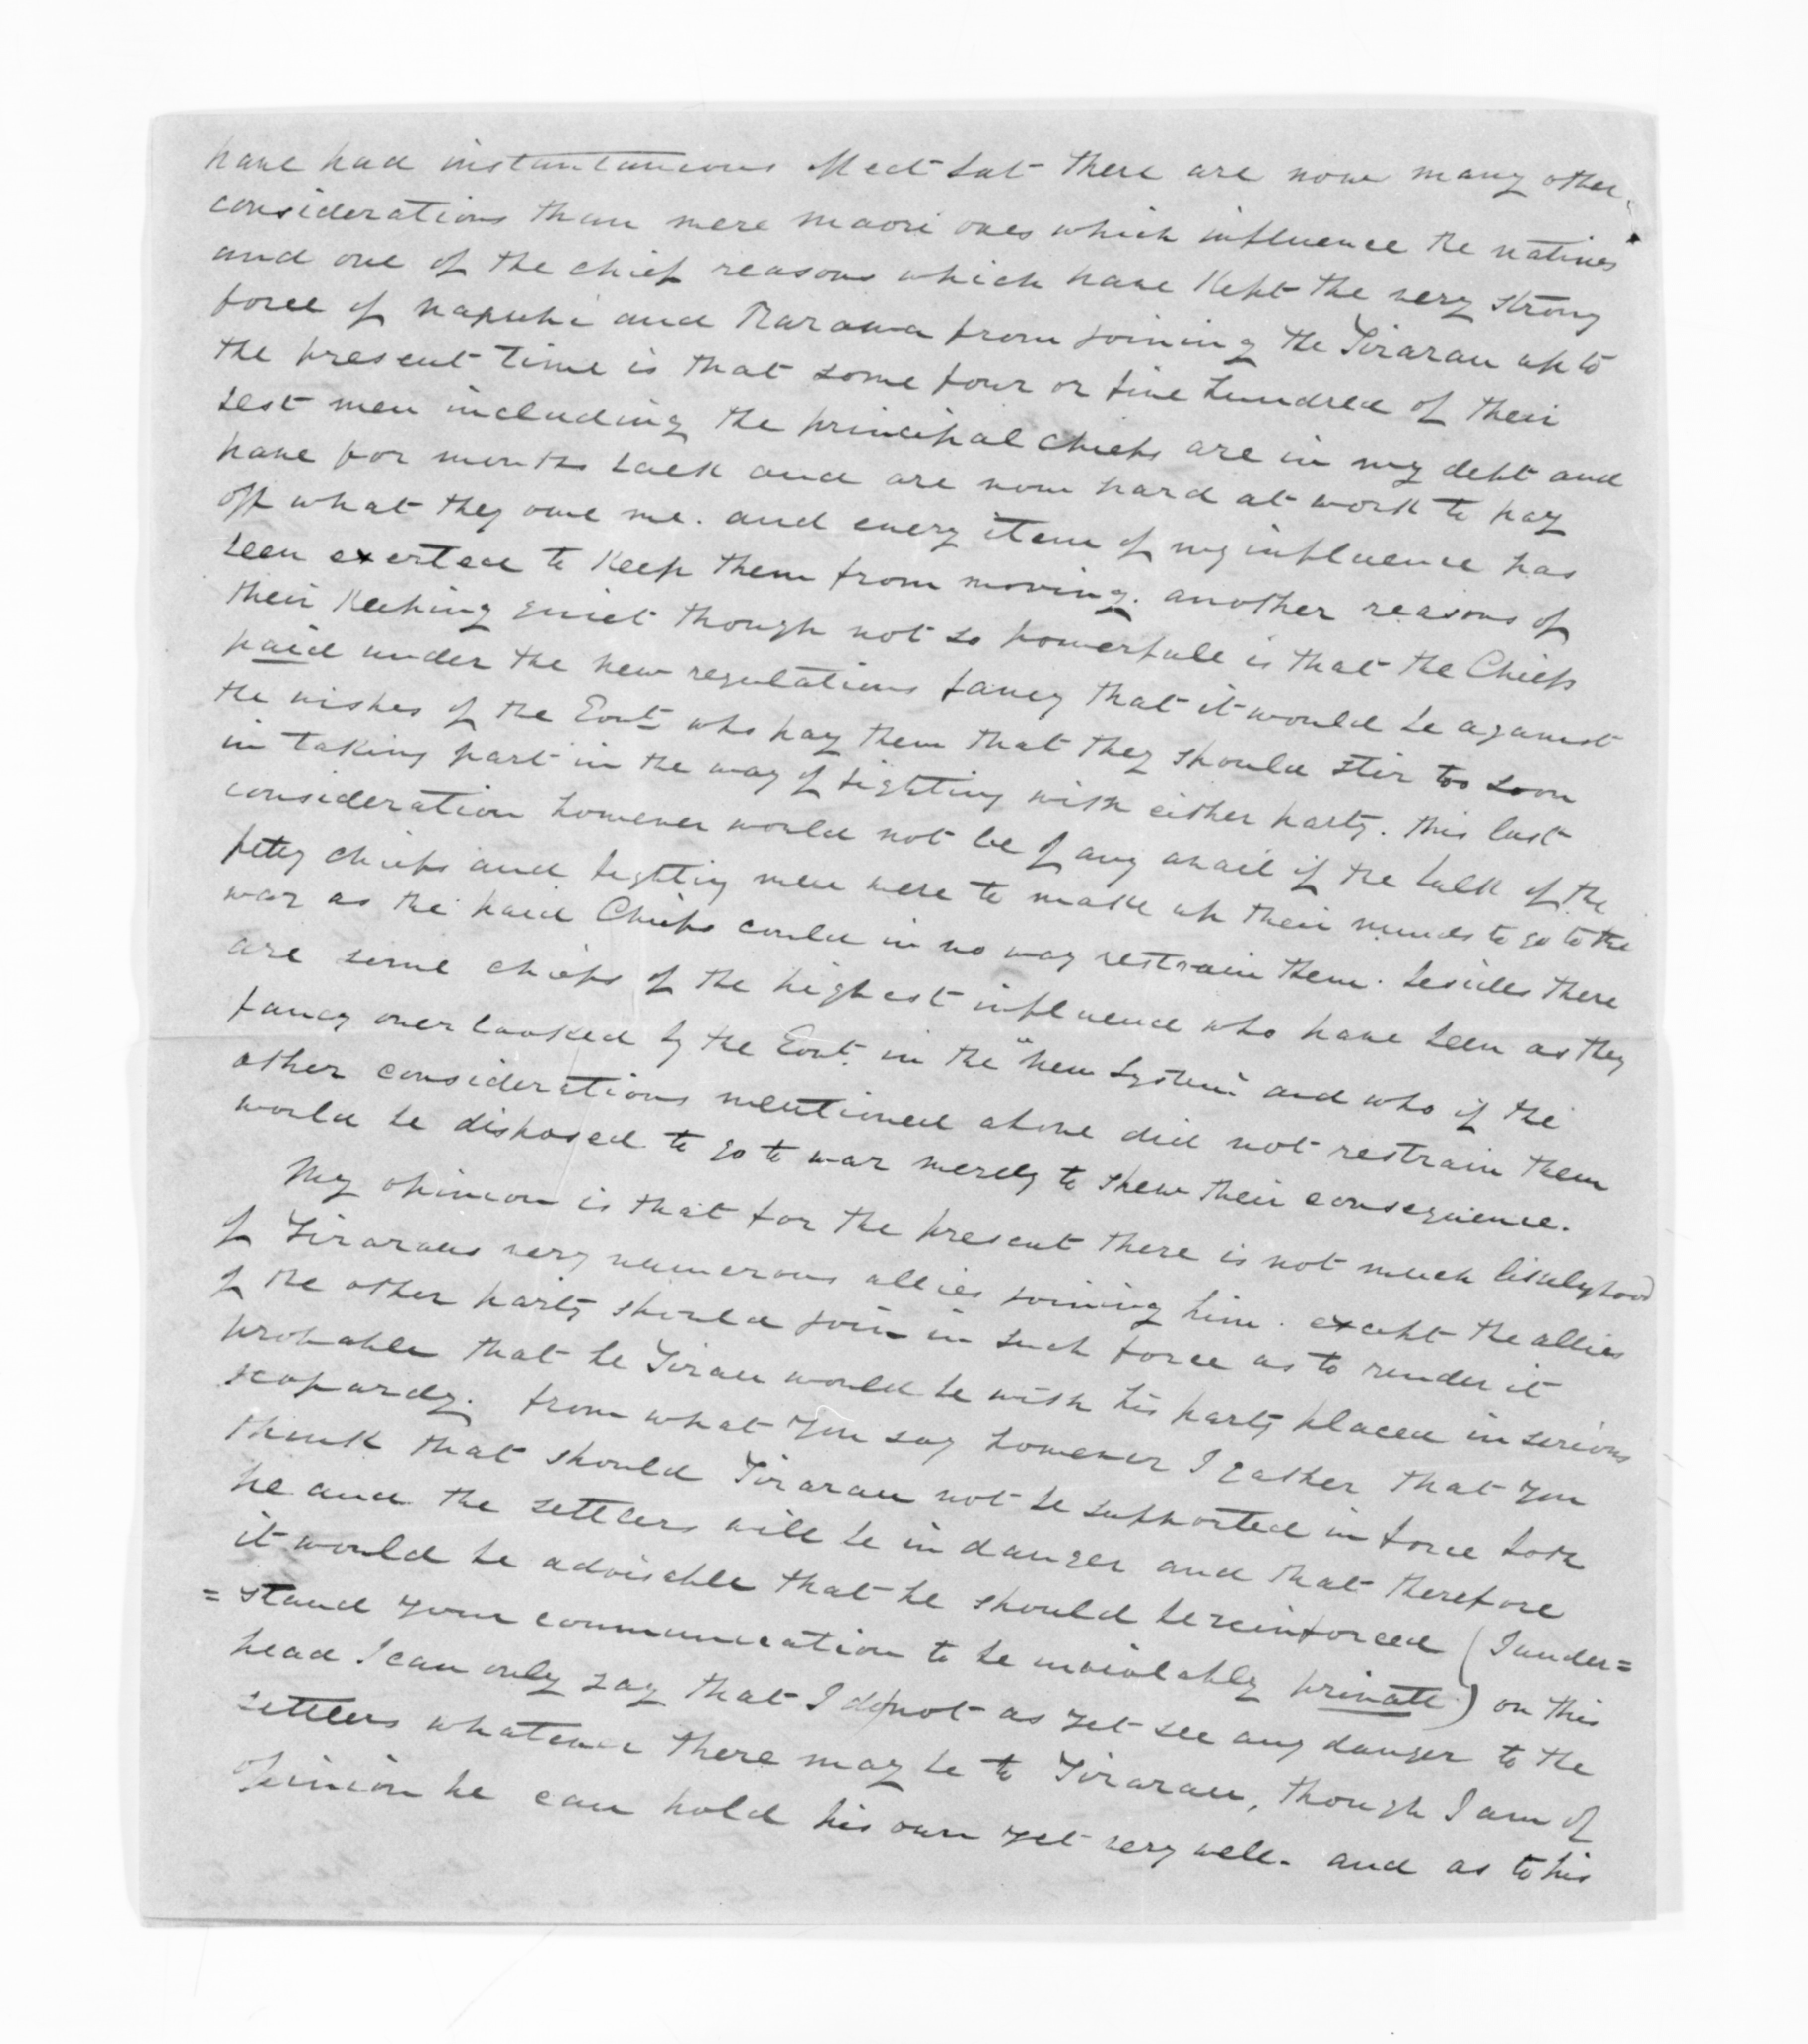 have had instantaneous effect but there are now many other
considerations than mere maori ones which influence the natives
and one of the chief reasons which have kept the very strong
force of napuhi and Rarawa from joining the Tirarau up to
the present time is that some four or five hundred of their
best men including the principal chiefs are in my debt and
have for months back and are now hard at work to pay
off what they owe me. and every item of my influence has
been exerted to keep them from moving. another reasons of
their keeping quiet though not so powerfull is that the Chiefs
paid under the new regulations fancy that it would be against
the wishes of the Govt. who pay them that they should stir too soon
in taking part in the way of fighting with either party. this last
consideration however would not be of any avail if the bulk of the
petty chiefs and fighting men were to make up their minds to go to the
war as the paid Chiefs could in no way restrain them. besides there
are some chiefs of the highest influence who have been as they
fancy overlooked by the Govt. in the "new system" and who if the
other considerations mentioned above did not restrain them
would be disposed to go to war merely to shew their consequence.
My opinion is that for the present there is not much likelyhood
of Tiraraus very numerous allies joining him. except the allies
of the other party should join in such force as to render it
probable that he Tirau would be with his party placed in serious
jeopardy. from what you say however I gather that you
think that should Tirarau not be supported in force both
he and the settlers will be in danger and that therefore
it would be advisable that he should be reinforced (I under=
=stand your communication to be inviolably private) on this
head I can only say that I do not as yet see any danger to the
settlers whatever there may be to Tirarau, though I am of
opinion he can hold his own yet very well. and as to his